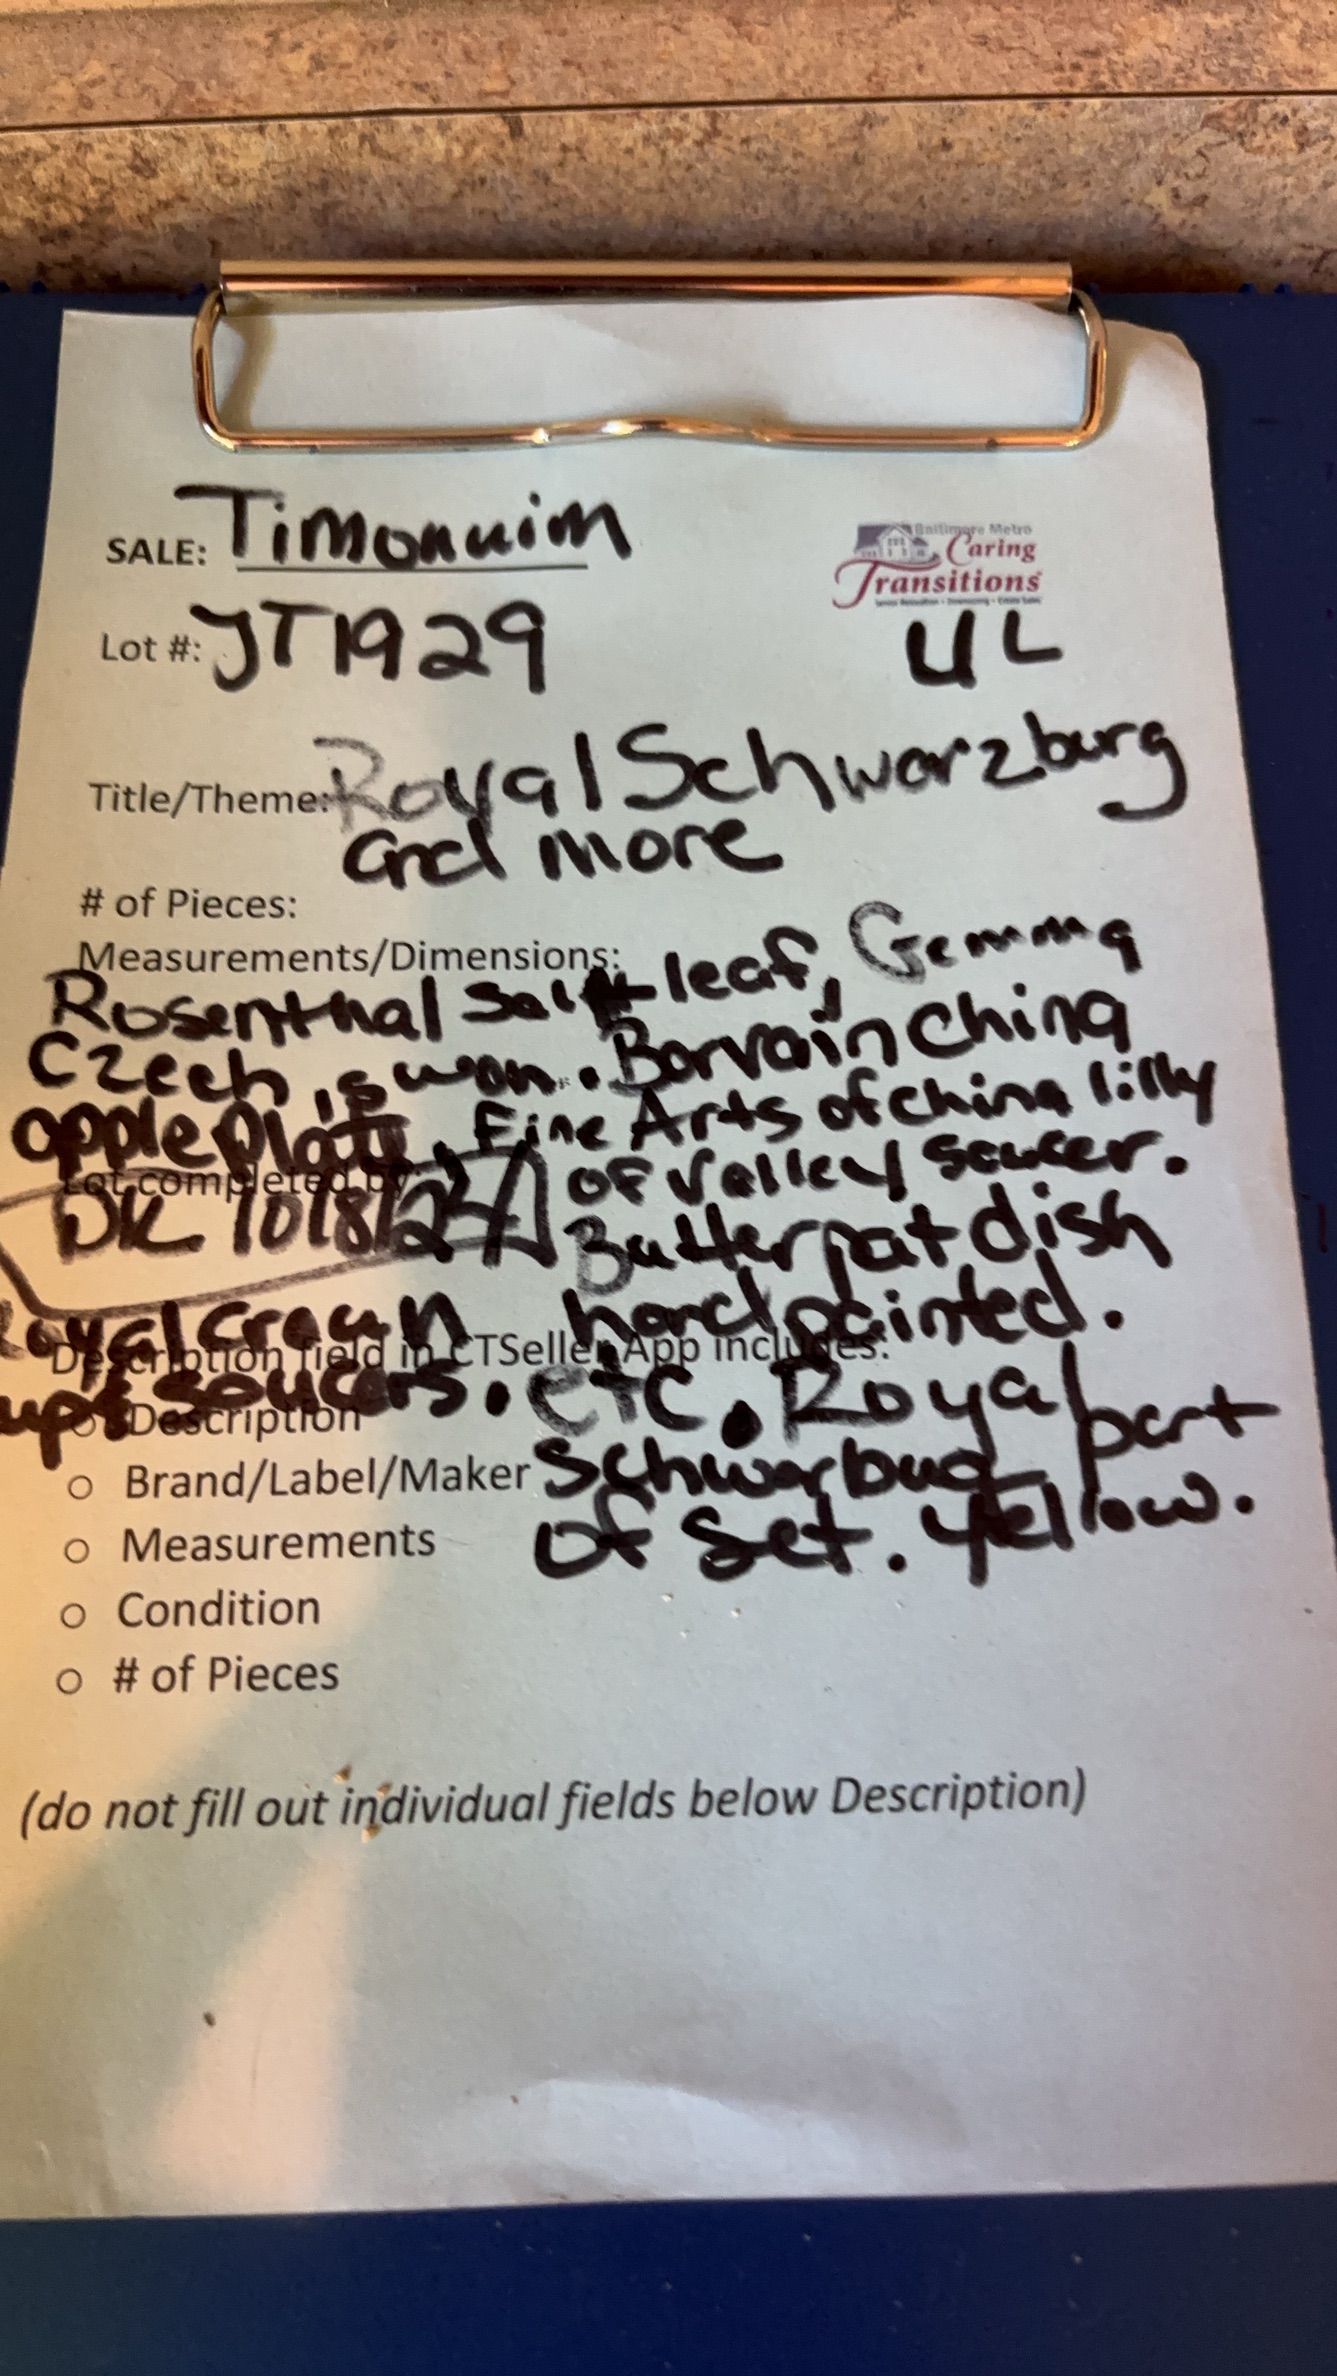 SALE: Timonuim
Baltimore Metro
Caring
Transitions
Lot #: JT1929
UL
Title/Theme: Royal Schwarzburg
and more
# of Pieces:
Measurements/Dimensions:
Rosenthal salt leaf, Gemma
Czech, swan. Borvain China
apple plate, Fine Arts of china lilly
of valley saucer.
Lot completed by
DK 10/8/24
Butter pat dish
Royal Crown hand painted.
Description field in CTSeller App includes:
saucers. etc. Royal
Description
part
Brand/Label/Maker
Schwarbug
Measurements
of set. yellow.
Condition
# of Pieces
(do not fill out individual fields below Description)